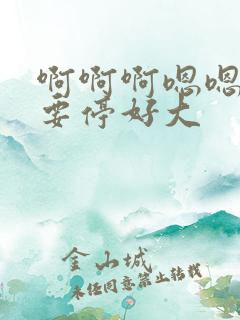 啊啊啊嗯嗯
要停好大
金山城
未经同意禁止转载